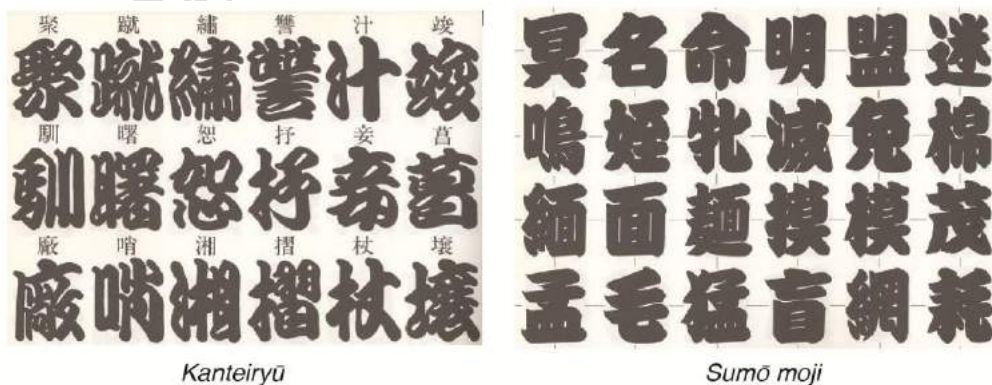 聚 蹴 繡 讐 汁 竣
聚 蹴 繡 讐 汁 竣
馴 曙 恕 抒 妾 菖
馴 曙 恕 抒 妾 菖
廠 哨 湘 摺 杖 壌
廠 哨 湘 摺 杖 壌
Kanteiryū
冥 名 命 明 盟 迷
鳴 姪 牝 滅 免 棉
緬 面 麺 摸 模 茂
孟 毛 猛 盲 網 耗
Sumō moji